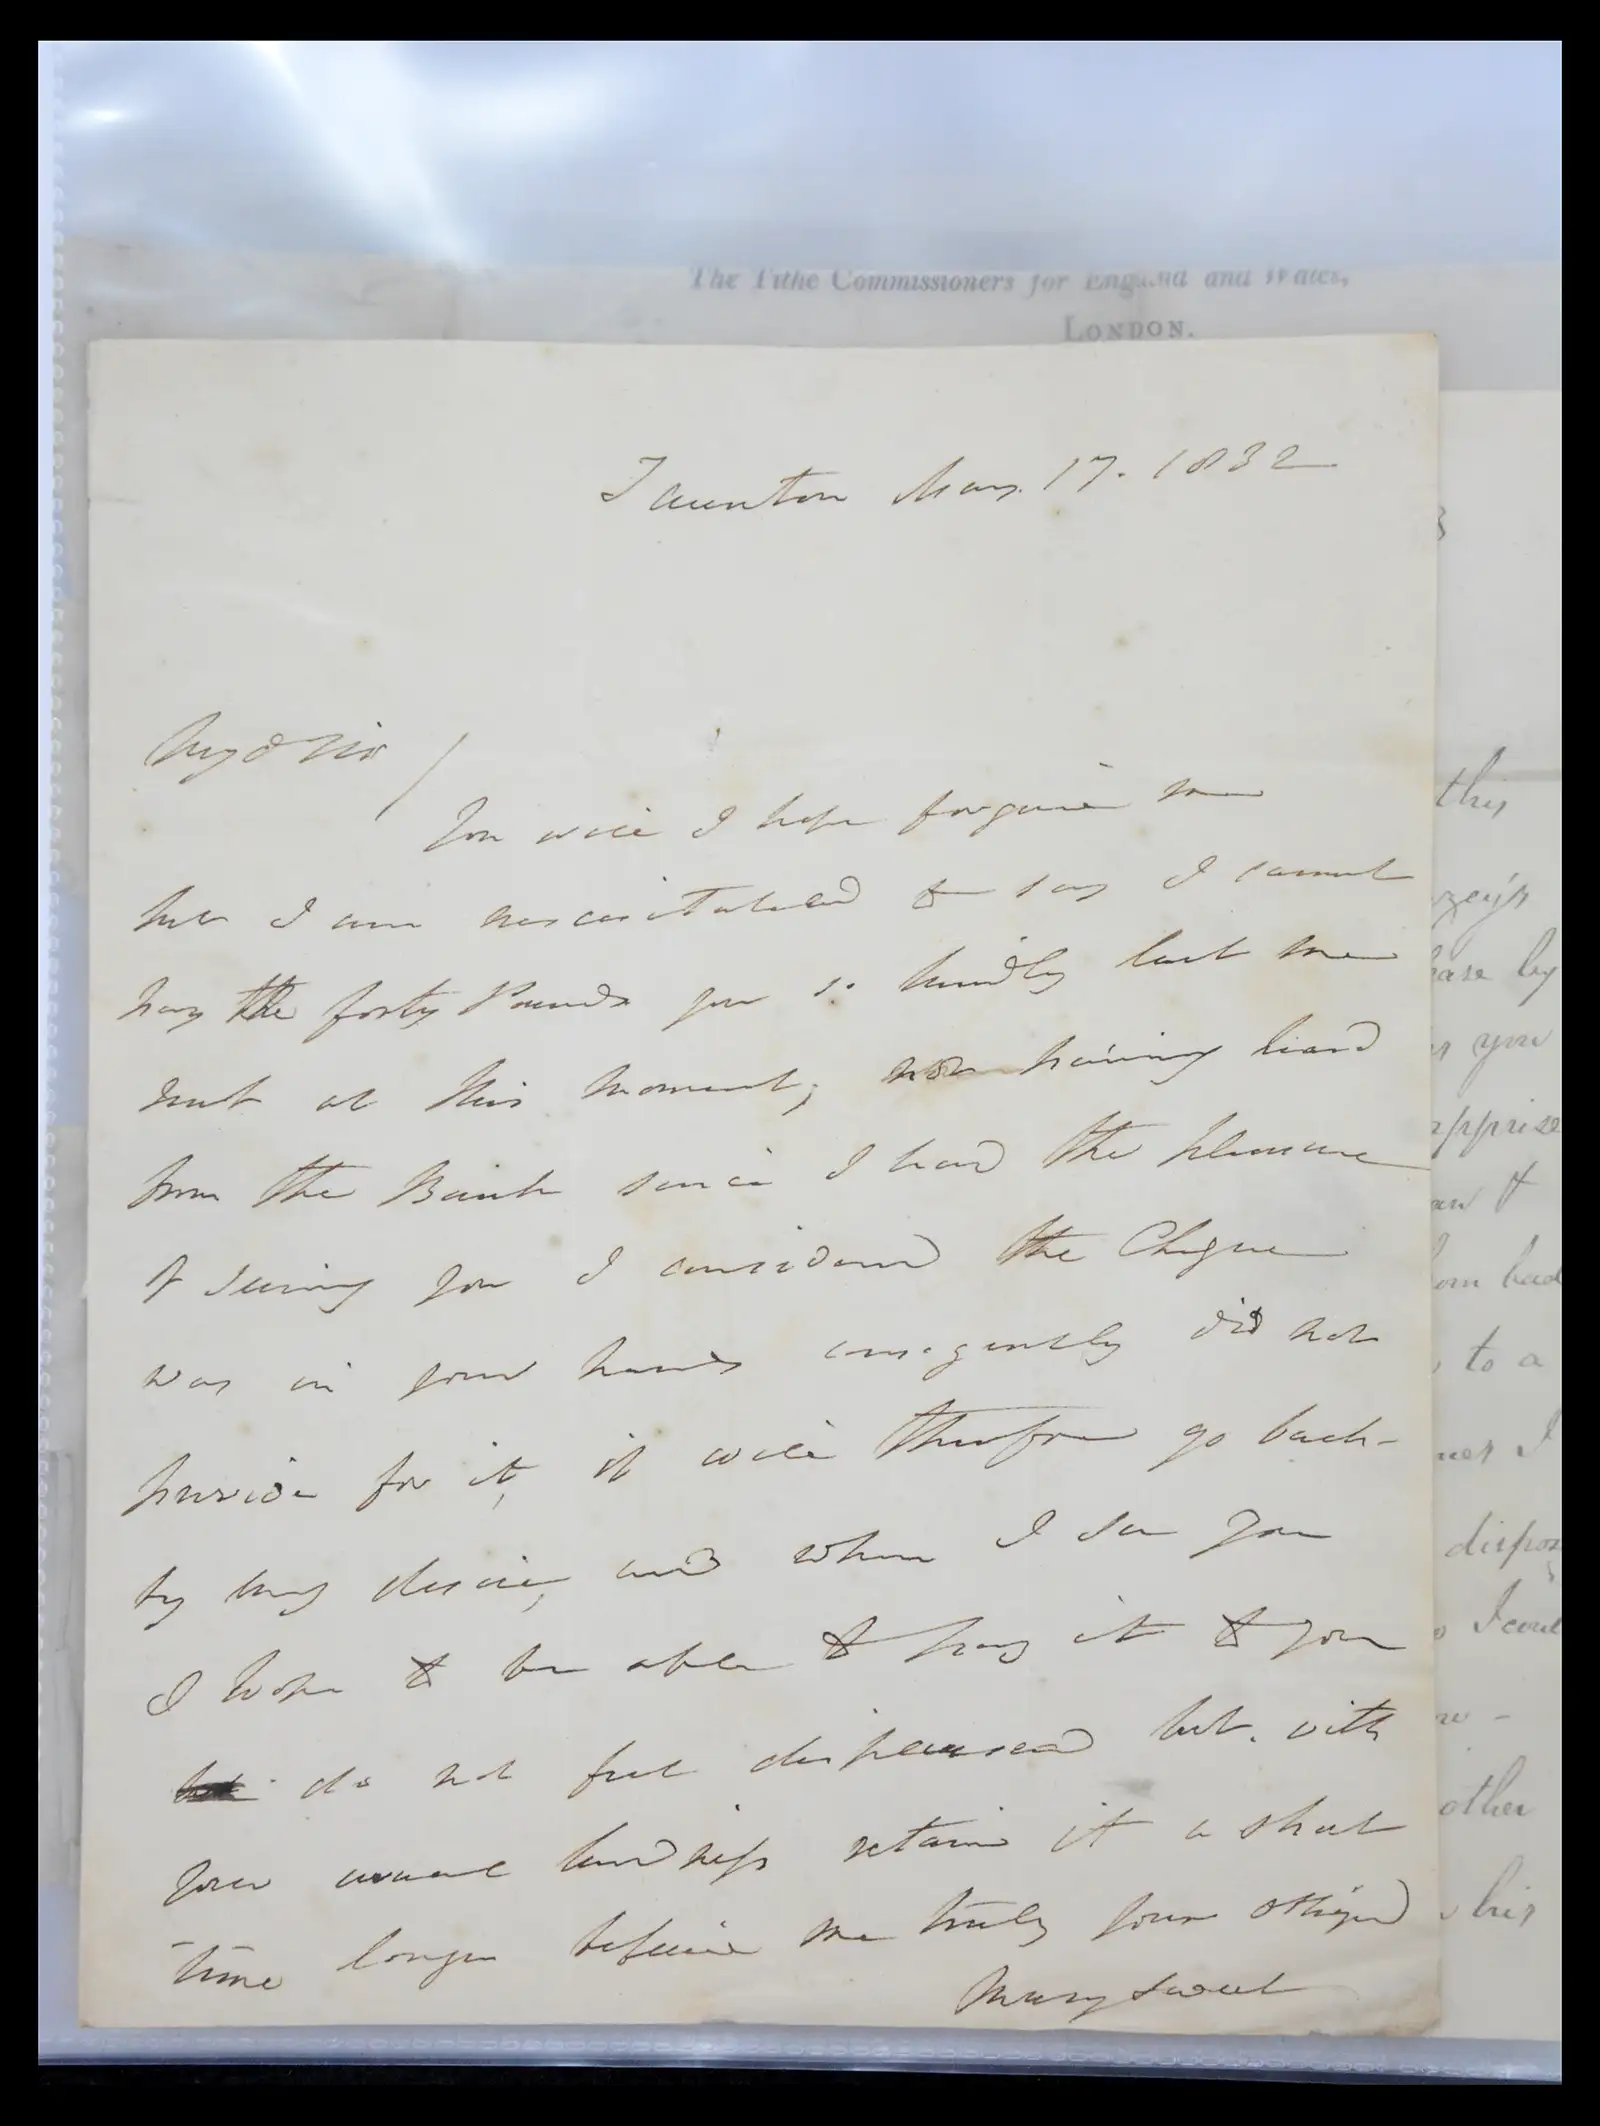 The Tithe Commissioners for England and Wales,
LONDON.
Taunton May. 17. 1832
My d Sir /
You will I hope forgive me
but I am necessitated to say I cannot
pay the forty Pounds you so kindly lent me
just at this moment, not having heard
from the Bank since I had the pleasure
of seeing you I considered the Cheque
was in your hands consequently did not
provide for it, it will therefore go back
by my desire, and when I see you
I hope to be able to pay it to you
do not feel displeased but with
your usual kindness retain it a short
time longer believe me truly your obliged
Mary Sweet
this
hase by
you
apprise
bad
to a
I
dispos
other
his